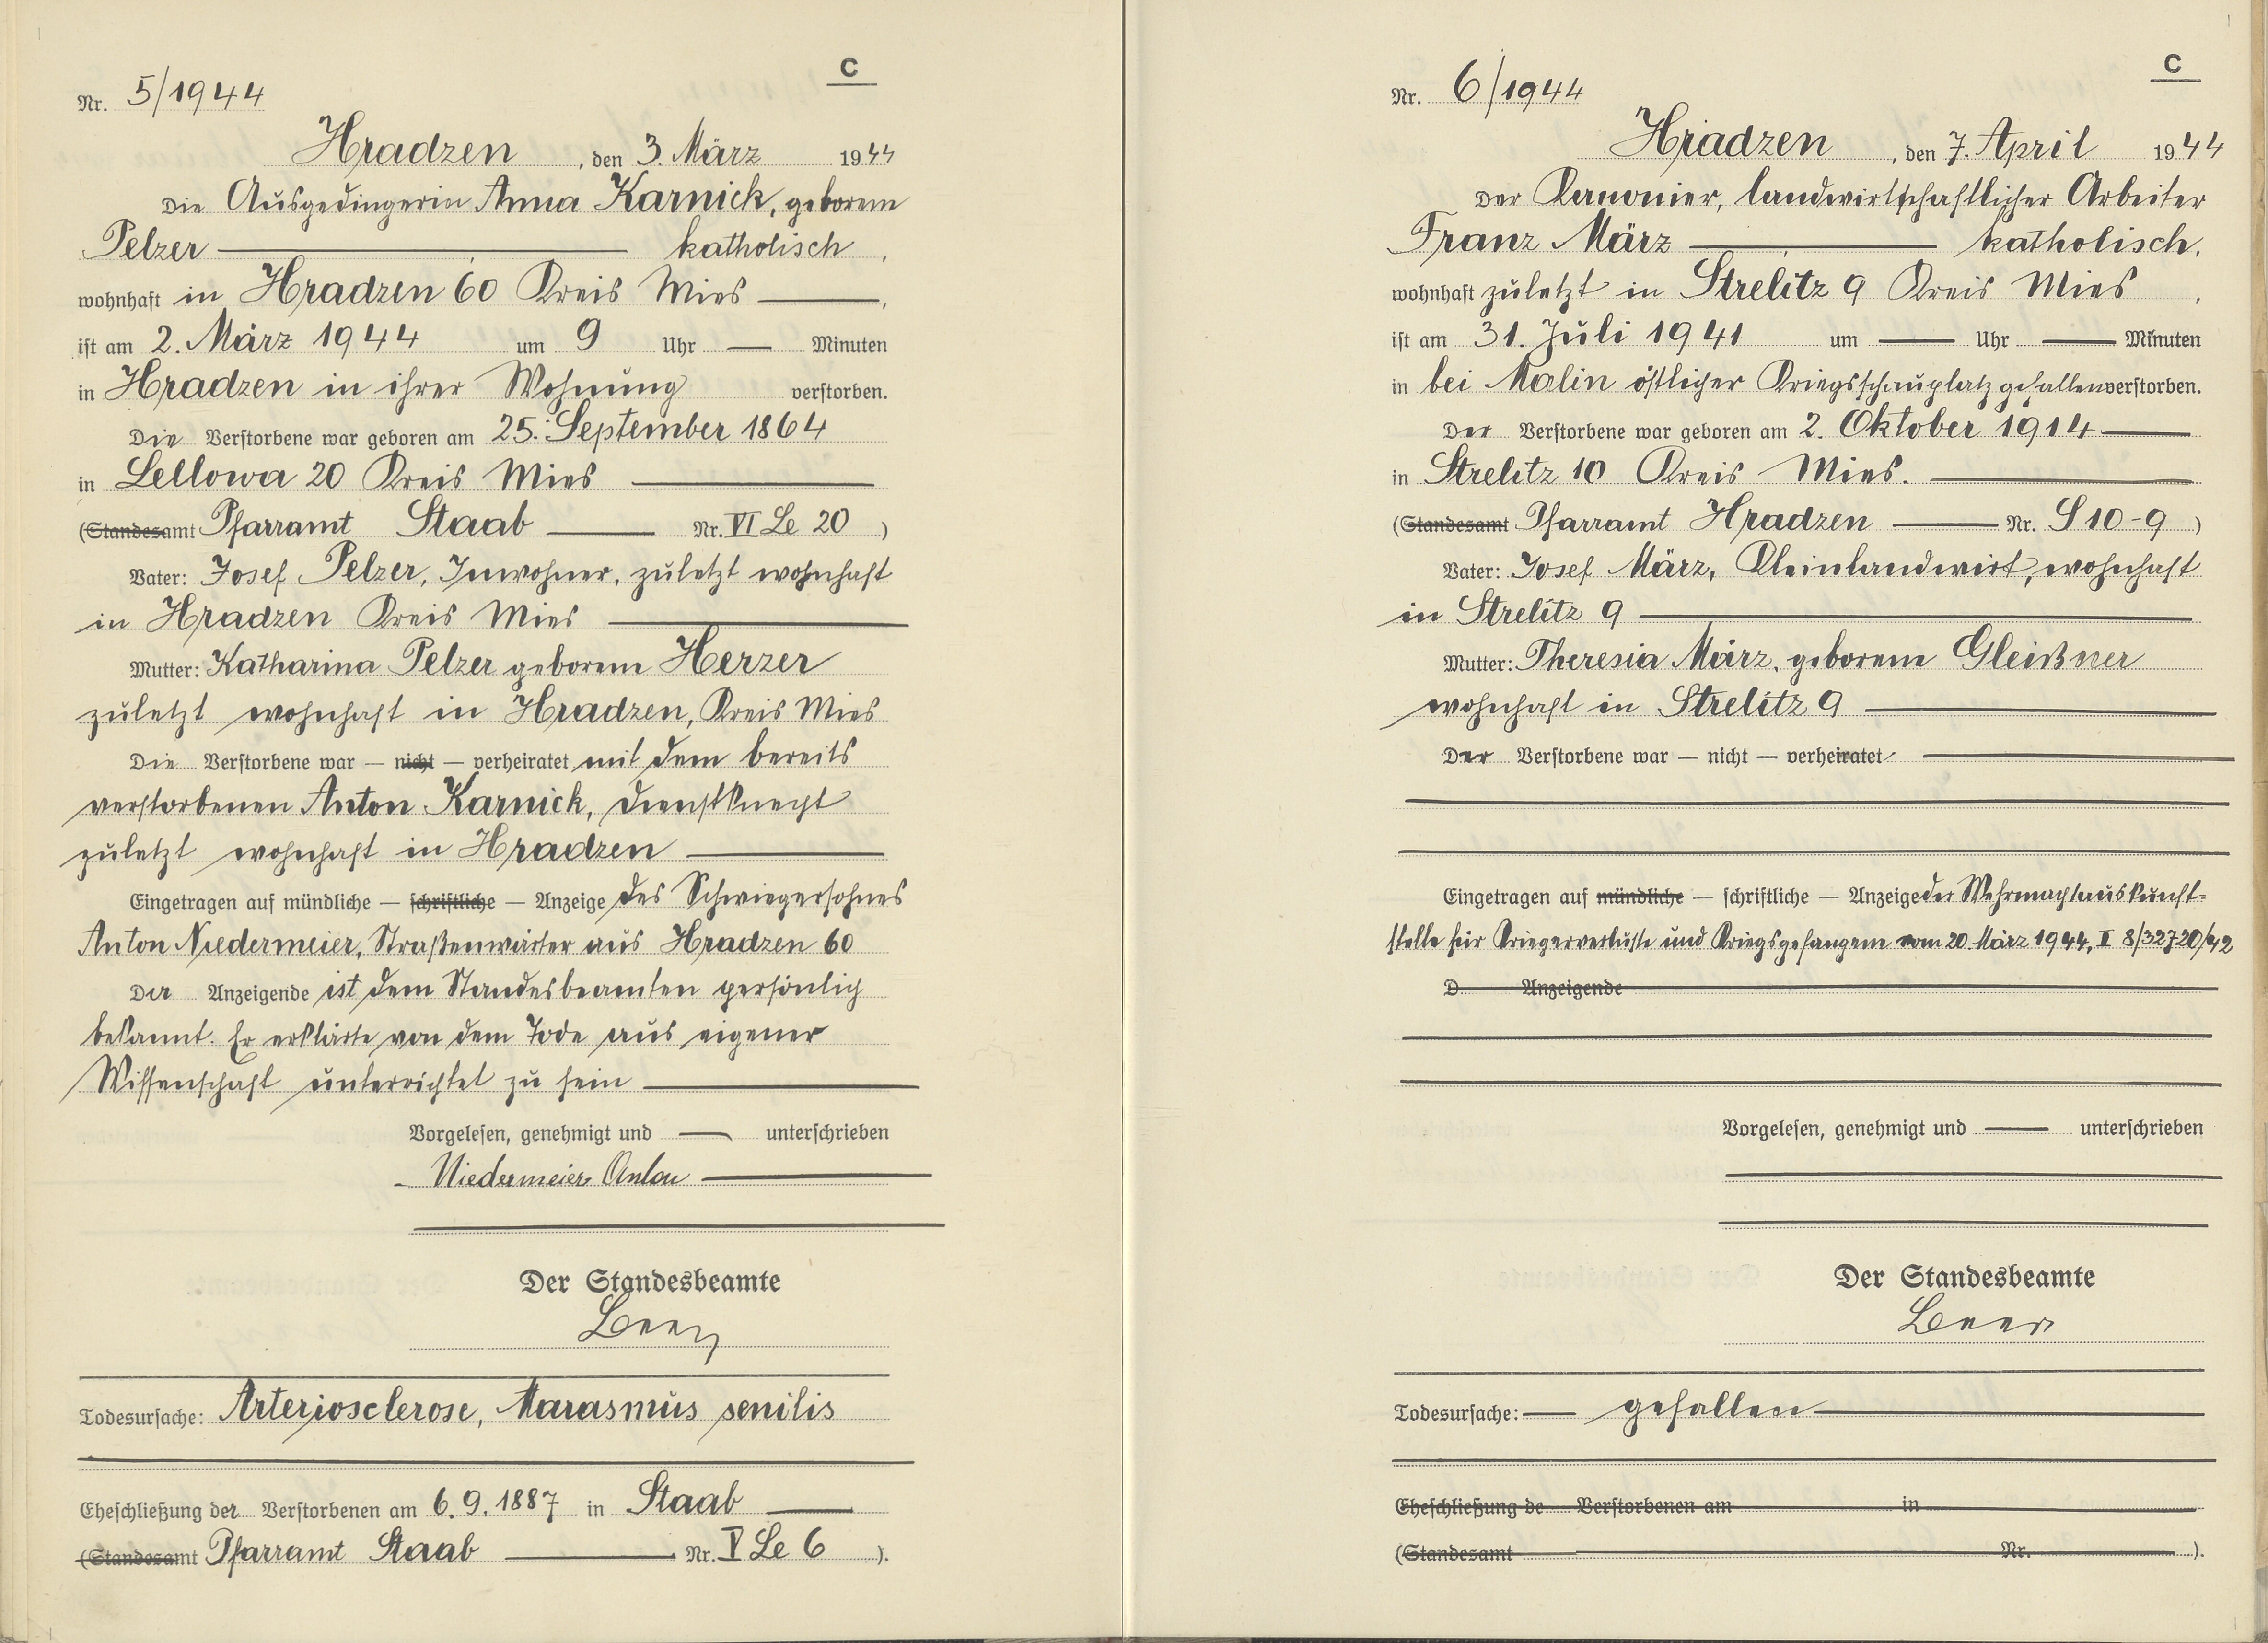 C
Nr. 5/1944
Hradzen, den 3. März 1944
Die Ausgedingerin Anna Karnick, geborene
Pelzer katholisch,
wohnhaft in Hradzen 60 Kreis Mies,
ist am 2. März 1944 um 9 Uhr — Minuten
in Hradzen in ihrer Wohnung verstorben.
Die Verstorbene war geboren am 25. September 1864
in Lellowa 20 Kreis Mies
(Standesamt Pfarramt Staab Nr. VI Le 20)
Vater: Josef Pelzer, Inwohner, zuletzt wohnhaft
in Hradzen Kreis Mies
Mutter: Katharina Pelzer geborene Herzer
zuletzt wohnhaft in Hradzen, Kreis Mies
Die Verstorbene war — nicht — verheiratet mit dem bereits
verstorbenen Anton Karnick, Dienstknecht
zuletzt wohnhaft in Hradzen
Eingetragen auf mündliche — schriftliche — Anzeige des Schwiegersohnes
Anton Niedermeier, Straßenwärter aus Hradzen 60
Der Anzeigende ist dem Standesbeamten persönlich
bekannt. Er erklärte von dem Tode aus eigener
Wissenschaft unterrichtet zu sein
Vorgelesen, genehmigt und — unterschrieben
Niedermeier Anton
Der Standesbeamte
Beer
Todesursache: Arteriosclerose, Marasmus senilis
Eheschließung der Verstorbenen am 6.9.1887 in Staab
(Standesamt Pfarramt Staab Nr. V Le 6).
C
Nr. 6/1944
Hradzen, den 7. April 1944
Der Kanonier, landwirtschaftlicher Arbeiter
Franz März katholisch,
wohnhaft zuletzt in Strelitz 9 Kreis Mies,
ist am 31. Juli 1941 um — Uhr — Minuten
in bei Malin östlicher Kriegsschauplatz gefallen verstorben.
Der Verstorbene war geboren am 2. Oktober 1914
in Strelitz 10 Kreis Mies.
(Standesamt Pfarramt Hradzen Nr. S 10-9)
Vater: Josef März, Kleinlandwirt, wohnhaft
in Strelitz 9
Mutter: Theresia März, geborene Gleißner
wohnhaft in Strelitz 9
Der Verstorbene war — nicht — verheiratet
Eingetragen auf mündliche — schriftliche — Anzeige der Wehrmachtauskunft-
stelle für Kriegerverluste und Kriegsgefangene vom 20. März 1944, II 8/32720/42
D Anzeigende
Vorgelesen, genehmigt und — unterschrieben
Der Standesbeamte
Beer
Todesursache: — gefallen
Eheschließung de Verstorbenen am in
(Standesamt Nr. ).